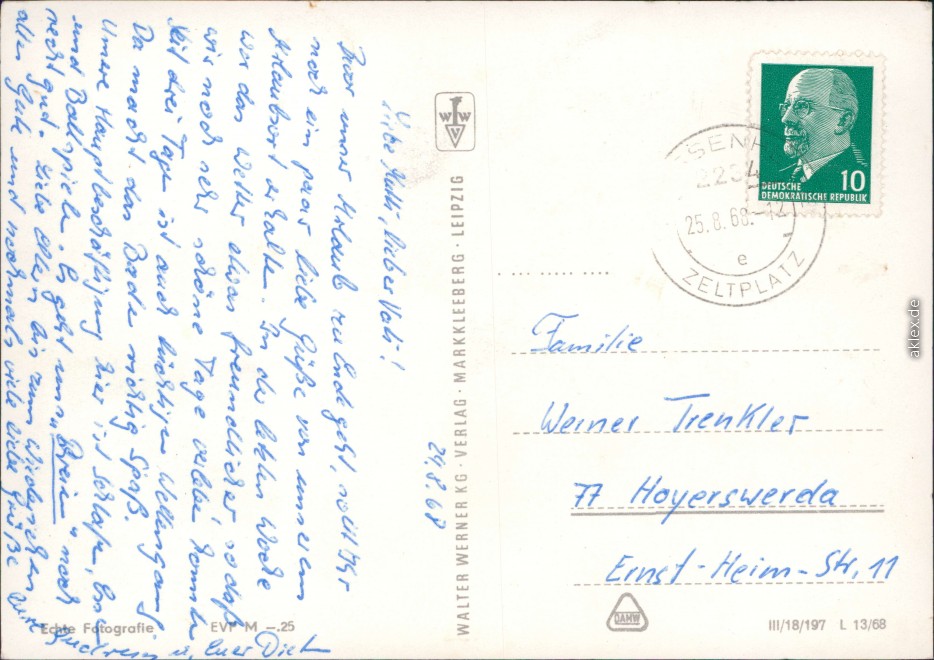 24.8.68
Liebe Mutti, lieber Vati!
Bevor unser Urlaub zu Ende geht, sollt Ihr
noch ein paar liebe Grüße von unserem
Urlaubsort erhalten. In der letzten Woche
war das Wetter etwas freundlicher, so daß
wir noch sehr schöne Tage verleben konnten.
Seit drei Tagen ist auch Wellengang!
Da macht das Baden richtig Spaß.
Unsere Hauptbeschäftigung hier ist schlafen,
und Ballspielen. Es geht uns noch
recht gut. bis zum Wiedersehen
alles Gute und nochmals viele liebe Grüße
Eure u. Euer
Echte Fotografie
EVP M -.25
WALTER WERNER KG · VERLAG · MARKKLEEBERG · LEIPZIG
W W V
DEUTSCHE
DEMOKRATISCHE REPUBLIK 10
25.8.68.-12
e
ZELTPLATZ
Familie
Werner Trenkler
77 Hoyerswerda
Ernst-Heim-Str. 11
DAMW
III/18/197 L 13/68
aklex.de